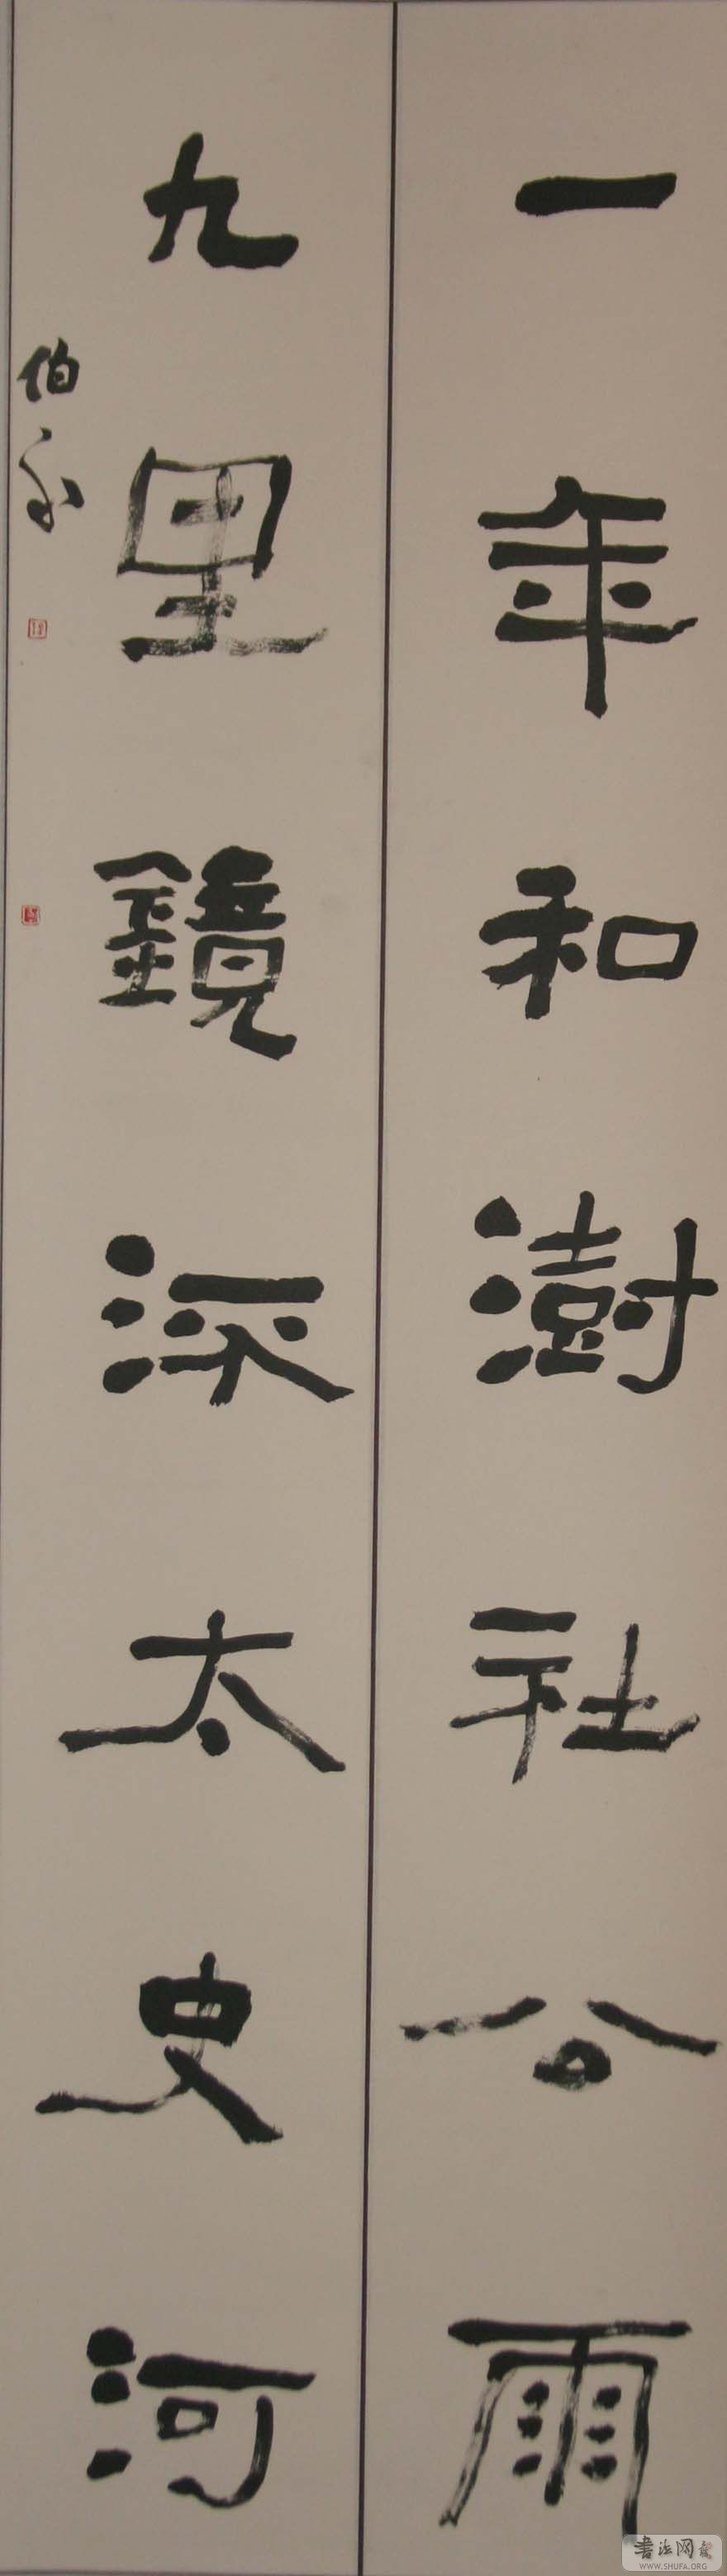 一年和澍社公雨
九里鏡深太史河
伯永
書法网
WWW.SHUFA.ORG